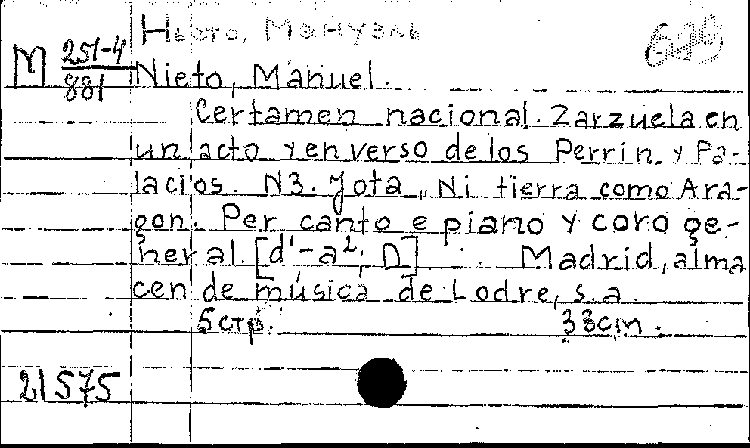 Ньето, Мануэль
М 251-4/881
Nieto, Manuel.
Certamen nacional. Zarzuela en
un acto y en verso de los Perrin y Pa-
lacios. N3. Jota, Ni tierra como Ara-
gon. Per canto e piano y coro ge-
neral. [d¹-a²; D] Madrid, alma
cen de música de Lodre, s.a.
5 стр. 33 cm.
21575